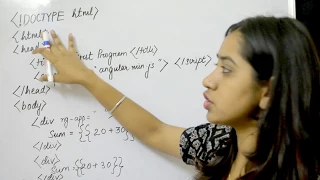 <!DOCTYPE html>
<html
<head
Program </title>
"angular.min.js"> </script>
</head>
<body>
<div ng-app=
Sum = {{20+30}}
</div>
<div>
Sum = {{20+30}}
</div>